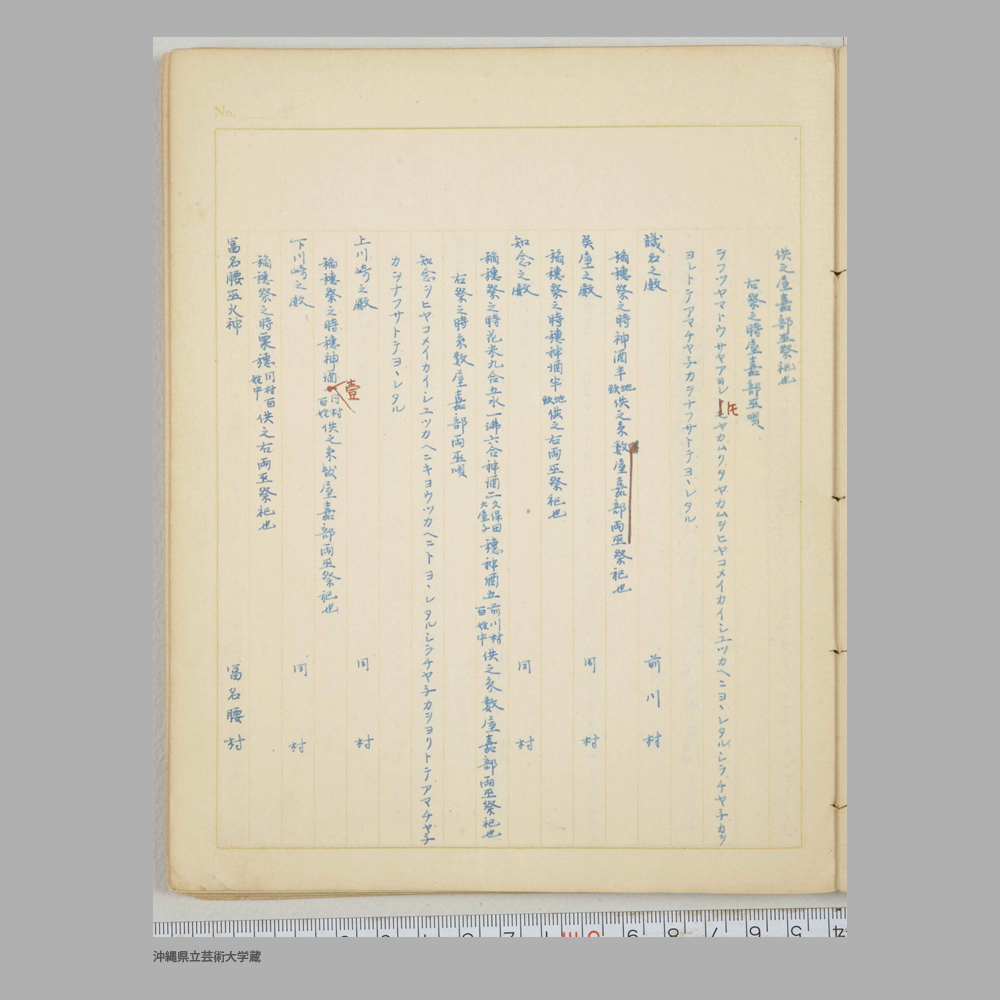 No.
供之屋嘉部巫祭祀也
右祭之時屋嘉部巫唄
シフツヤマトウサヤアヨレモヤカムリタヤカムシヒヤコメイカイシユツカヘニヨヽレタルシラチヤ子カツ
ヨレトテアマチヤ子カツナフサトテヨヽレタル
モ
識名之殿 前川村
稲穂祭之時神酒半地数供之糸数屋嘉部両巫祭祀也
呉屋之殿 同村
稲穂祭之時穂神酒半地数供之右両巫祭祀也
知念之殿 同村
稲穂祭之時花米九合五水一沸六合神酒二久保田大屋子穂神酒五前川村百姓中供之糸数屋嘉部両巫祭祀也
右祭之時糸数屋嘉部両巫唄
知念シヒヤコメイカイシユツカヘニキヨウツカヘニトヨヽレタルシラチヤ子カツヨリトテアマチヤ子
カツナフサトテヨヽレタル
上川崎之殿 同村
稲穂祭之時穂神酒壹同村百姓供之糸数屋嘉部両巫祭祀也
下川崎之殿 同村
稲穂祭之時粟穂川村百姓中供之右両巫祭祀也
冨名腰巫火神 冨名腰村
4 5 6 7 8 9
沖縄県立芸術大学蔵